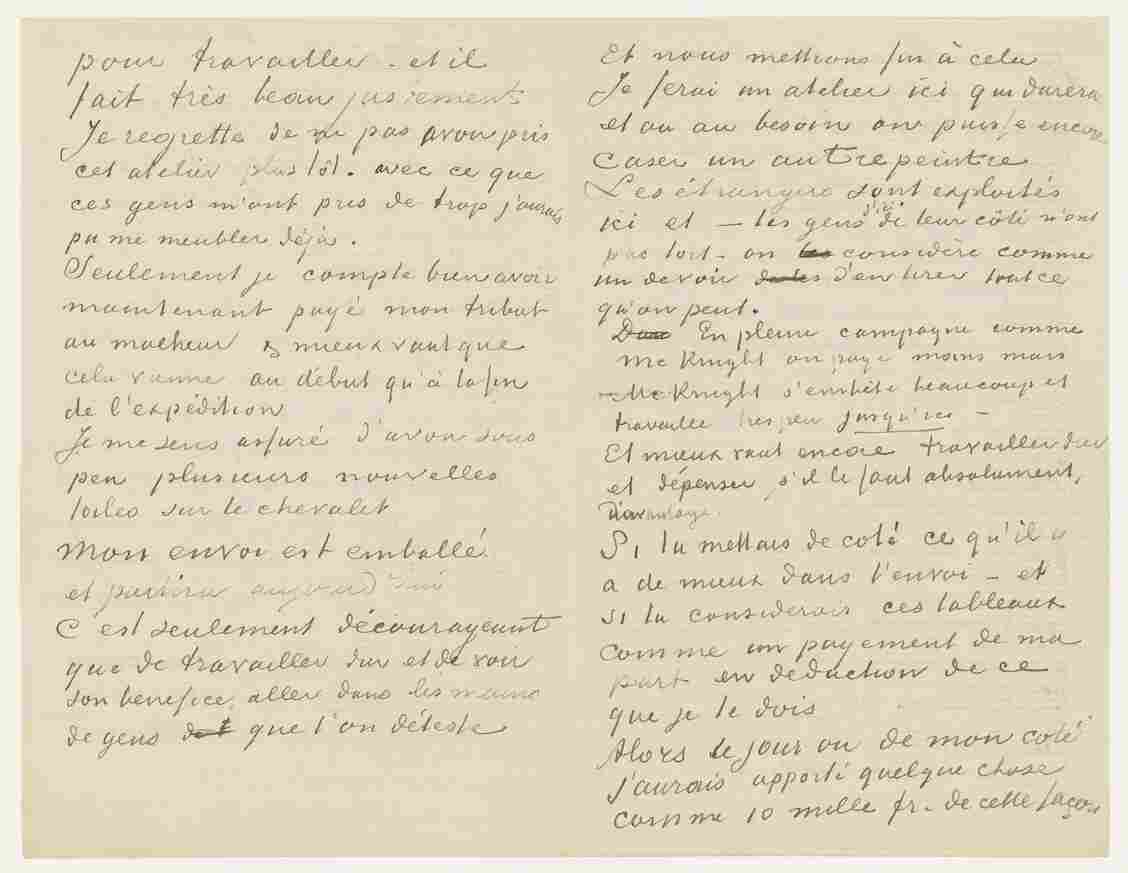 pour travailler – et il
fait très beau justement
Je regrette de ne pas avoir pris
cet atelier plus tôt. avec ce que
ces gens m'ont pris de trop j'aurais
pu me meubler déjà.
Seulement je compte bien avoir
maintenant payé mon tribut
au malheur & mieux vaut que
cela vienne au début qu'à la fin
de l'expédition
Je me sens assuré d'avoir sous
peu plusieurs nouvelles
toiles sur le chevalet
Mon envoi est emballé
et partira aujourd'hui
C'est seulement décourageant
que de travailler dur et de voir
son benefice aller dans les mains
de gens que l'on déteste
Et nous mettrons fin à cela
Je ferai un atelier ici qui durera
et ou au besoin on puisse encore
Caser un autre peintre
Les étrangers sont exploités
ici et – les gens d'ici de leur côté n'ont
pas tort – on considère comme
un devoir d'en tirer tout ce
qu'on peut.
En pleine campagne comme
Mc Knight on paye moins mais
– Mc Knight s'embête beaucoup et
travaille très peu jusqu'ici –
Et mieux vaut encore travailler dur
et dépenser, s'il le faut absolument,
Davantage.
Si tu mettais de coté ce qu'il y
a de mieux dans l'envoi – et
si tu considerais ces tableaux
comme un payement de ma
part en déduction de ce
que je te dois
Alors le jour ou de mon coté
j'aurais apporté quelque chose
comme 10 mille fr. de cette façon